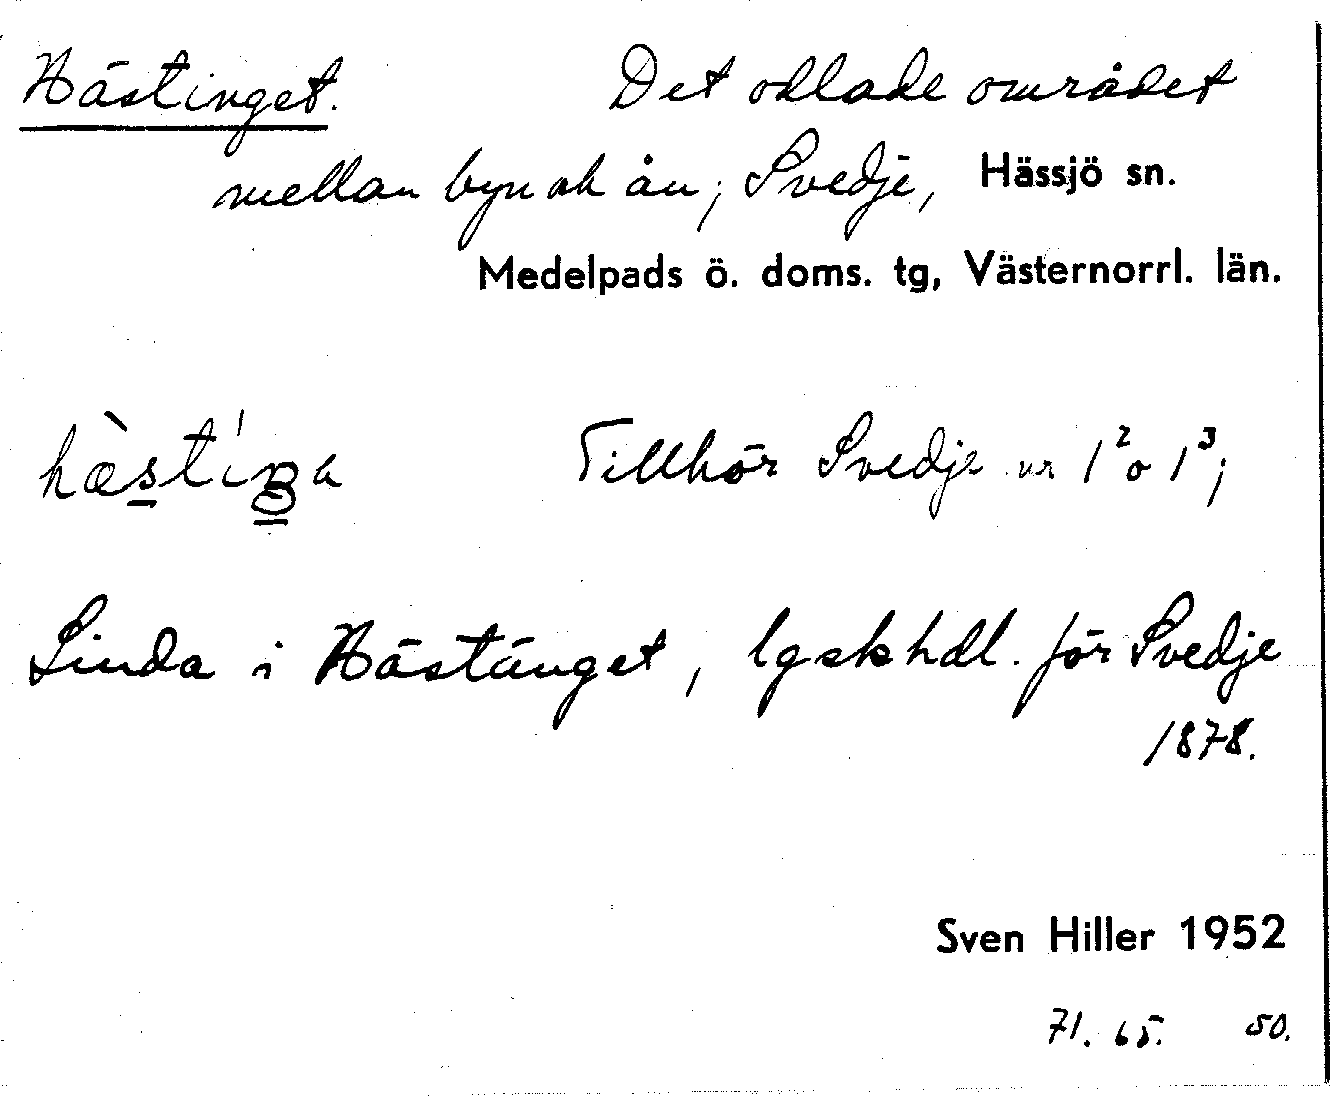 Hästinget. Det odlade området
mellan byn ok ån; Svedje, Hässjö sn.
Medelpads ö. doms. tg, Västernorrl. län.
hæ̀stíŋa Tillhör Svedje nr 1² o 1³;
Linda i Hästänget, lgskhdl. för Svedje
1878.
Sven Hiller 1952
71. 65. 50.